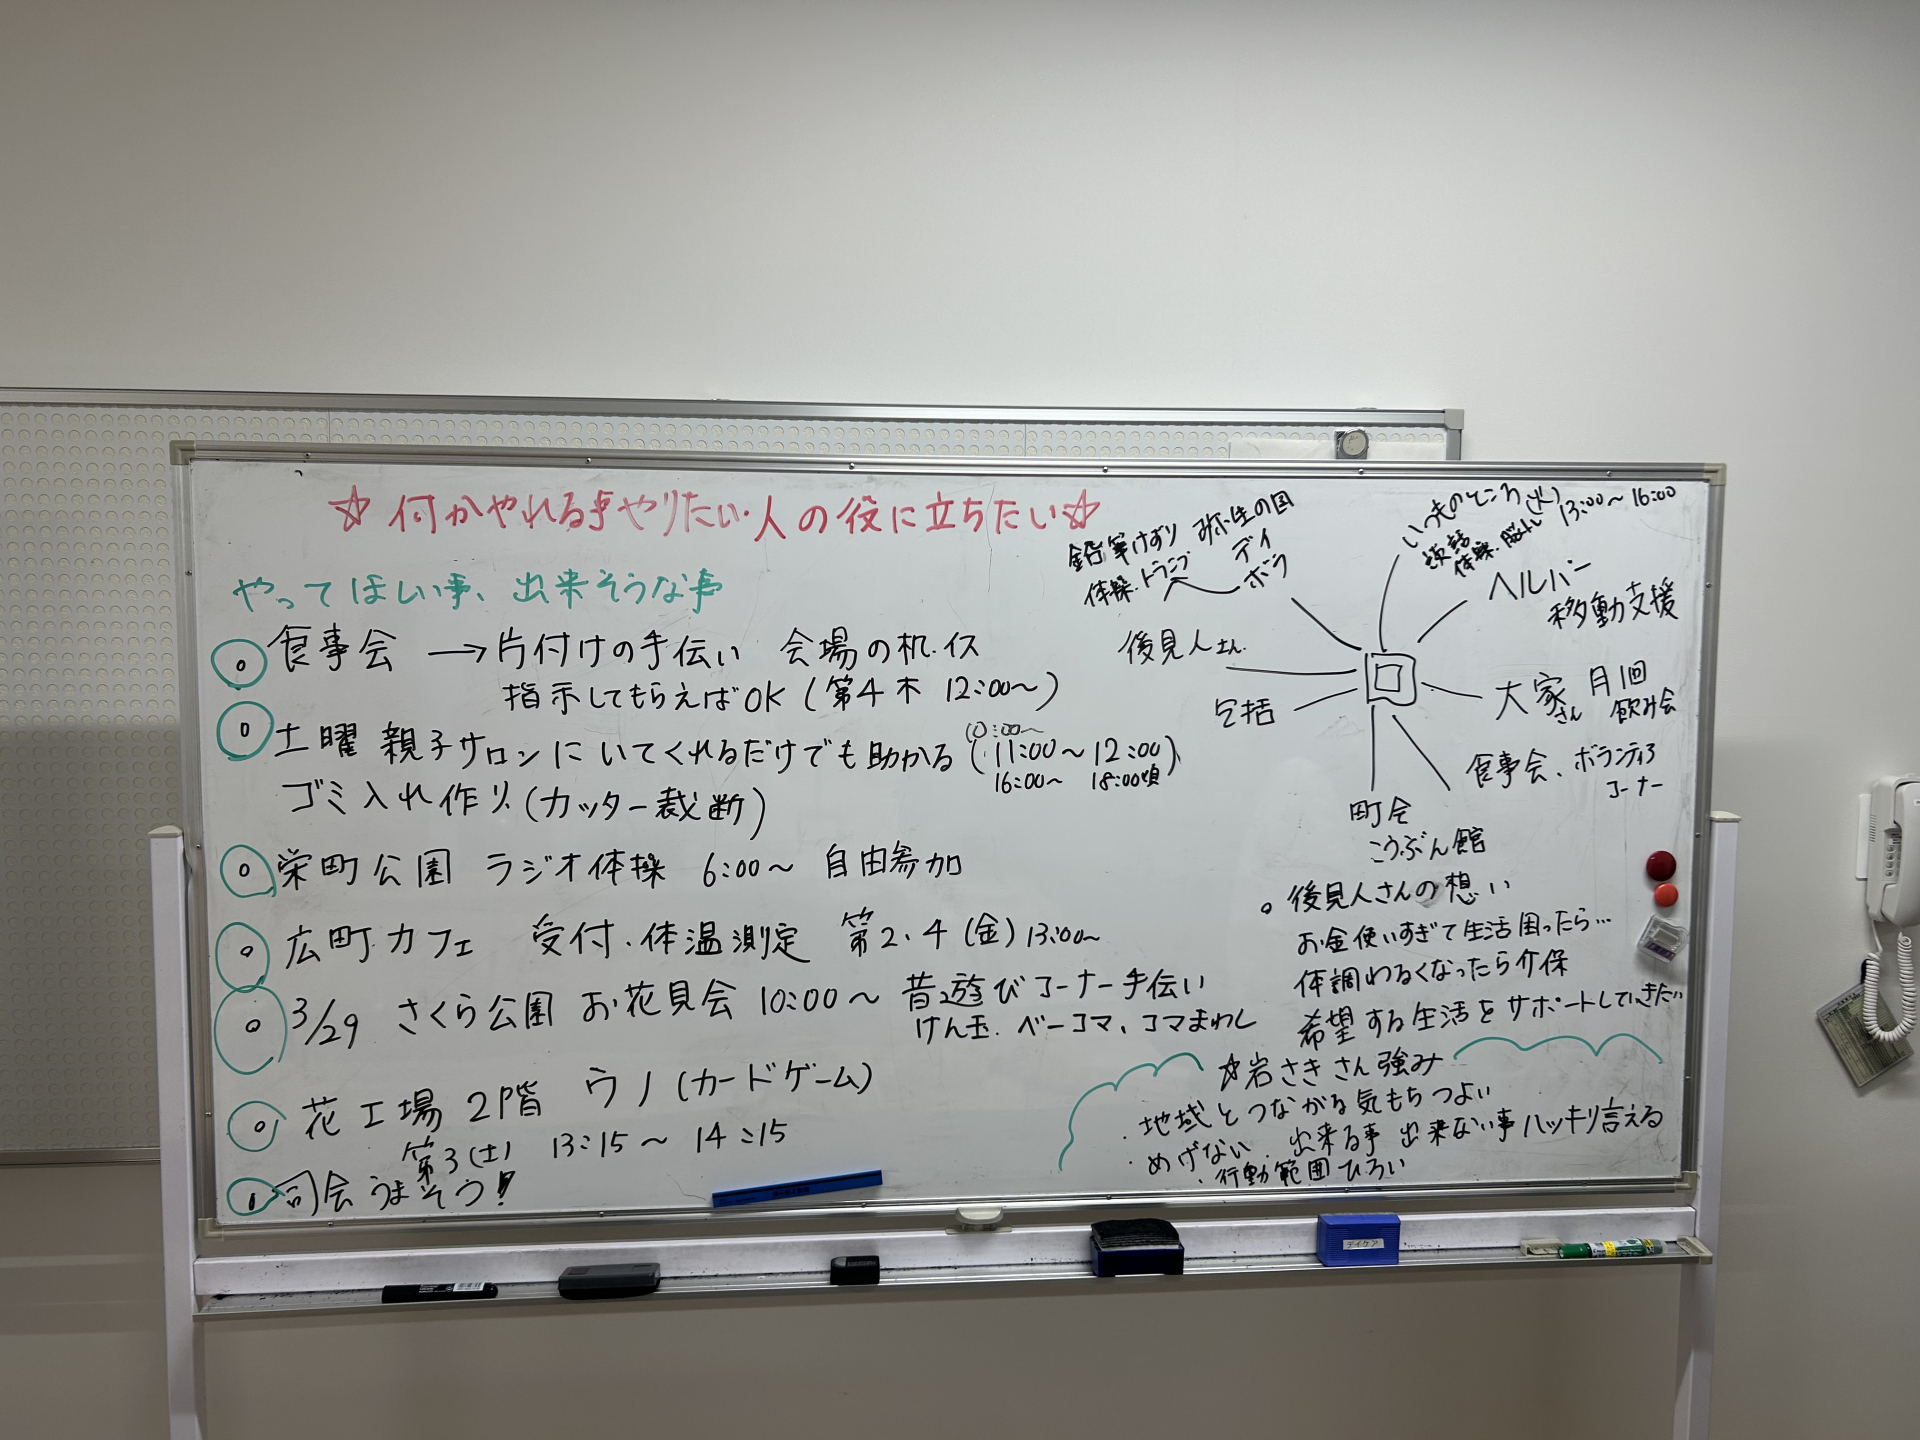 ☆ 何かやれる事やりたい・人の役に立ちたい☆
やってほしい事、出来そうな事
○ 食事会 → 片付けの手伝い 会場の机.イス
指示してもらえばOK (第4木 12:00〜)
○ 土曜 親子サロンにいてくれるだけでも助かる (11:00〜12:00)
10:00〜
16:00〜 18:00頃
ゴミ入れ作り (カッター裁断)
○ 栄町公園 ラジオ体操 6:00〜 自由参加
○ 広町カフェ 受付.体温測定 第2.4(金) 13:00〜
○ 3/29 さくら公園 お花見会 10:00〜 昔遊びコーナー手伝い
けん玉. ベーコマ、コマまわし
○ 花工場 2階 ウノ (カードゲーム)
第3(土) 13:15〜14:15
司会うまそう!
鉛筆けずり
体操.トランプ
弥生の園
デイ
ボラ
いつものところ(火) 13:00〜16:00
談話
体操.脳トレ
ヘルパー
移動支援
後見人さん.
包括
大家さん 月1回
飲み会
食事会、ボランティア
コーナー
町会
こうぶん館
○ 後見人さんの想い
お金使いすぎて生活困ったら…
体調わるくなったら介保
希望する生活をサポートしていきたい
☆岩さきさん強み
・地域とつながる気もちつよい
・めげない. 出来る事 出来ない事ハッキリ言える
・行動範囲ひろい
デイケア